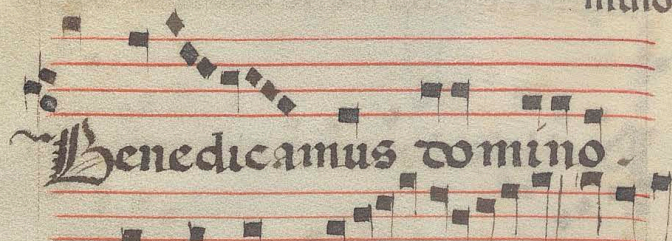 Benedicamus domino.